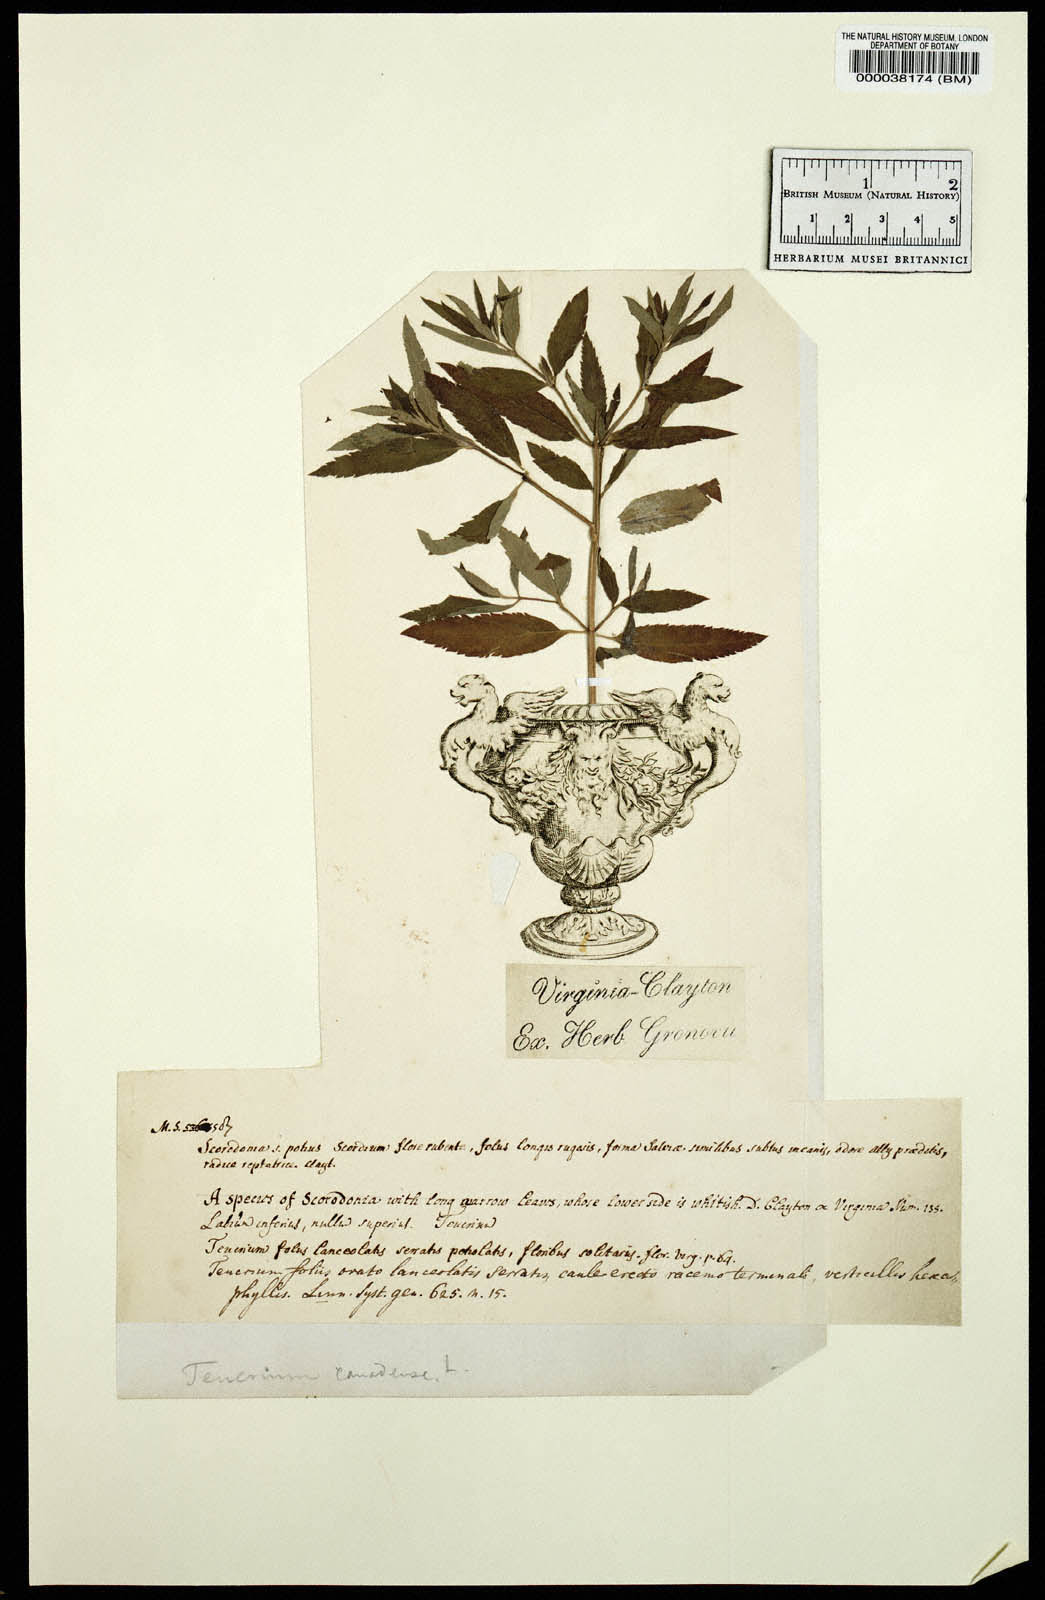 THE NATURAL HISTORY MUSEUM, LONDON
DEPARTMENT OF BOTANY
000038174 (BM)
1 2
BRITISH MUSEUM (NATURAL HISTORY)
1 2 3 4 5
HERBARIUM MUSEI BRITANNICI
Virginia-Clayton
Ex. Herb Gronovii
M. S.
Scorodonia s. potius Scordium flore rubente, foliis longis rugosis, forma Salviæ similibus subtus incanis, odore allij præditis,
radice reptatrice. Clayt.
A species of Scorodonia with long narrow leaves, whose lower side is whitish. D. Clayton ex Virginia Num. 135.
Labium inferius, nullum superius. Teucrium
Teucrium foliis lanceolatis serratis petiolatis, floribus solitariis. flor. virg. p. 64.
Teucrium foliis ovato lanceolatis serratis, caule erecto racemo terminali, verticillis hexa-
phyllis. Linn. Syst. gen. 625. n. 15.
Teucrium canadense. L.